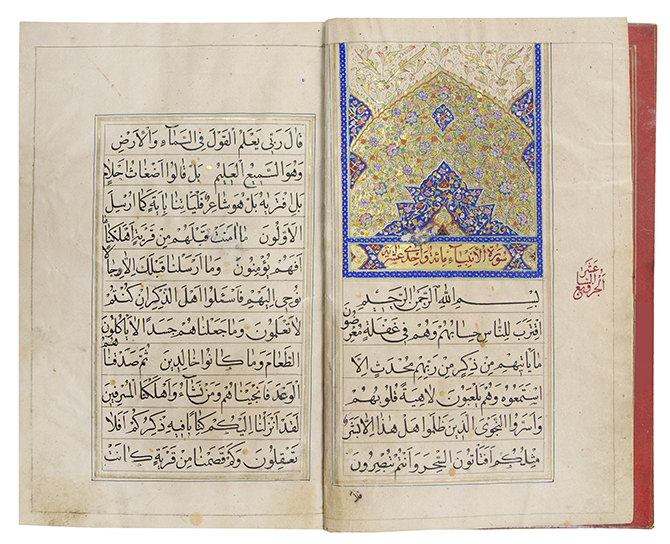 سورة الانبیاء مائة واحد عشر اية
بسم الله الرحمن الرحيم
اقترب للناس حسابهم وهم في غفلة معرضون
ما ياتيهم من ذكر من ربهم محدث الا
استمعوه وهم يلعبون لاهية قلوبهم
واسروا النجوى الذين ظلموا هل هذا الا بشر
مثلكم افتاتون السحر وانتم تبصرون
الجزو السابع عشر
قال ربي يعلم القول في السماء والارض
وهو السميع العليم بل قالوا اضغاث احلام
بل افتريه بل هو شاعر فلياتنا باية كما ارسل
الاولون ما امنت قبلهم من قرية اهلكناها
افهم يؤمنون وما ارسلنا قبلك الا رجالا
نوحي اليهم فاسئلوا اهل الذكر ان كنتم
لا تعلمون وما جعلناهم جسدا لا ياكلون
الطعام وما كانوا خالدين ثم صدقناهم
الوعد فانجيناهم ومن نشاء واهلكنا المسرفين
لقد انزلنا اليكم كتابا فيه ذكركم افلا
تعقلون وكم قصمنا من قرية كانت